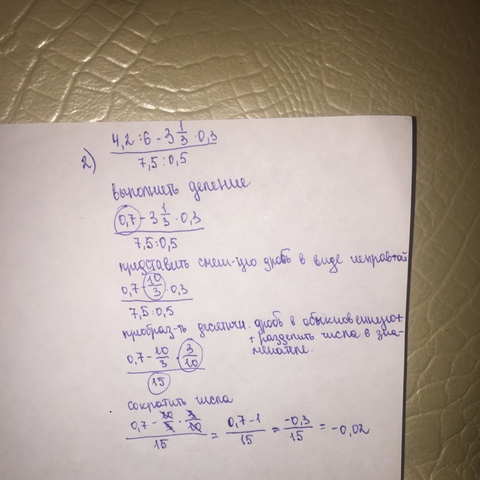 2) (4,2 : 6 - 3 1/3 · 0,3) / (7,5 : 0,5)
выполнить деление
(0,7 - 3 1/3 · 0,3) / (7,5 : 0,5)
представить смеш-ую дробь в виде неправ-ой
(0,7 - 10/3 · 0,3) / (7,5 : 0,5)
преобраз-ть десятичн. дробь в обыкновенную +
+ разделить числа в зна-
менателе.
(0,7 - 10/3 · 3/10) / 15
сократить числа
(0,7 - 10/3 · 3/10) / 15 = (0,7 - 1) / 15 = -0,3 / 15 = -0,02